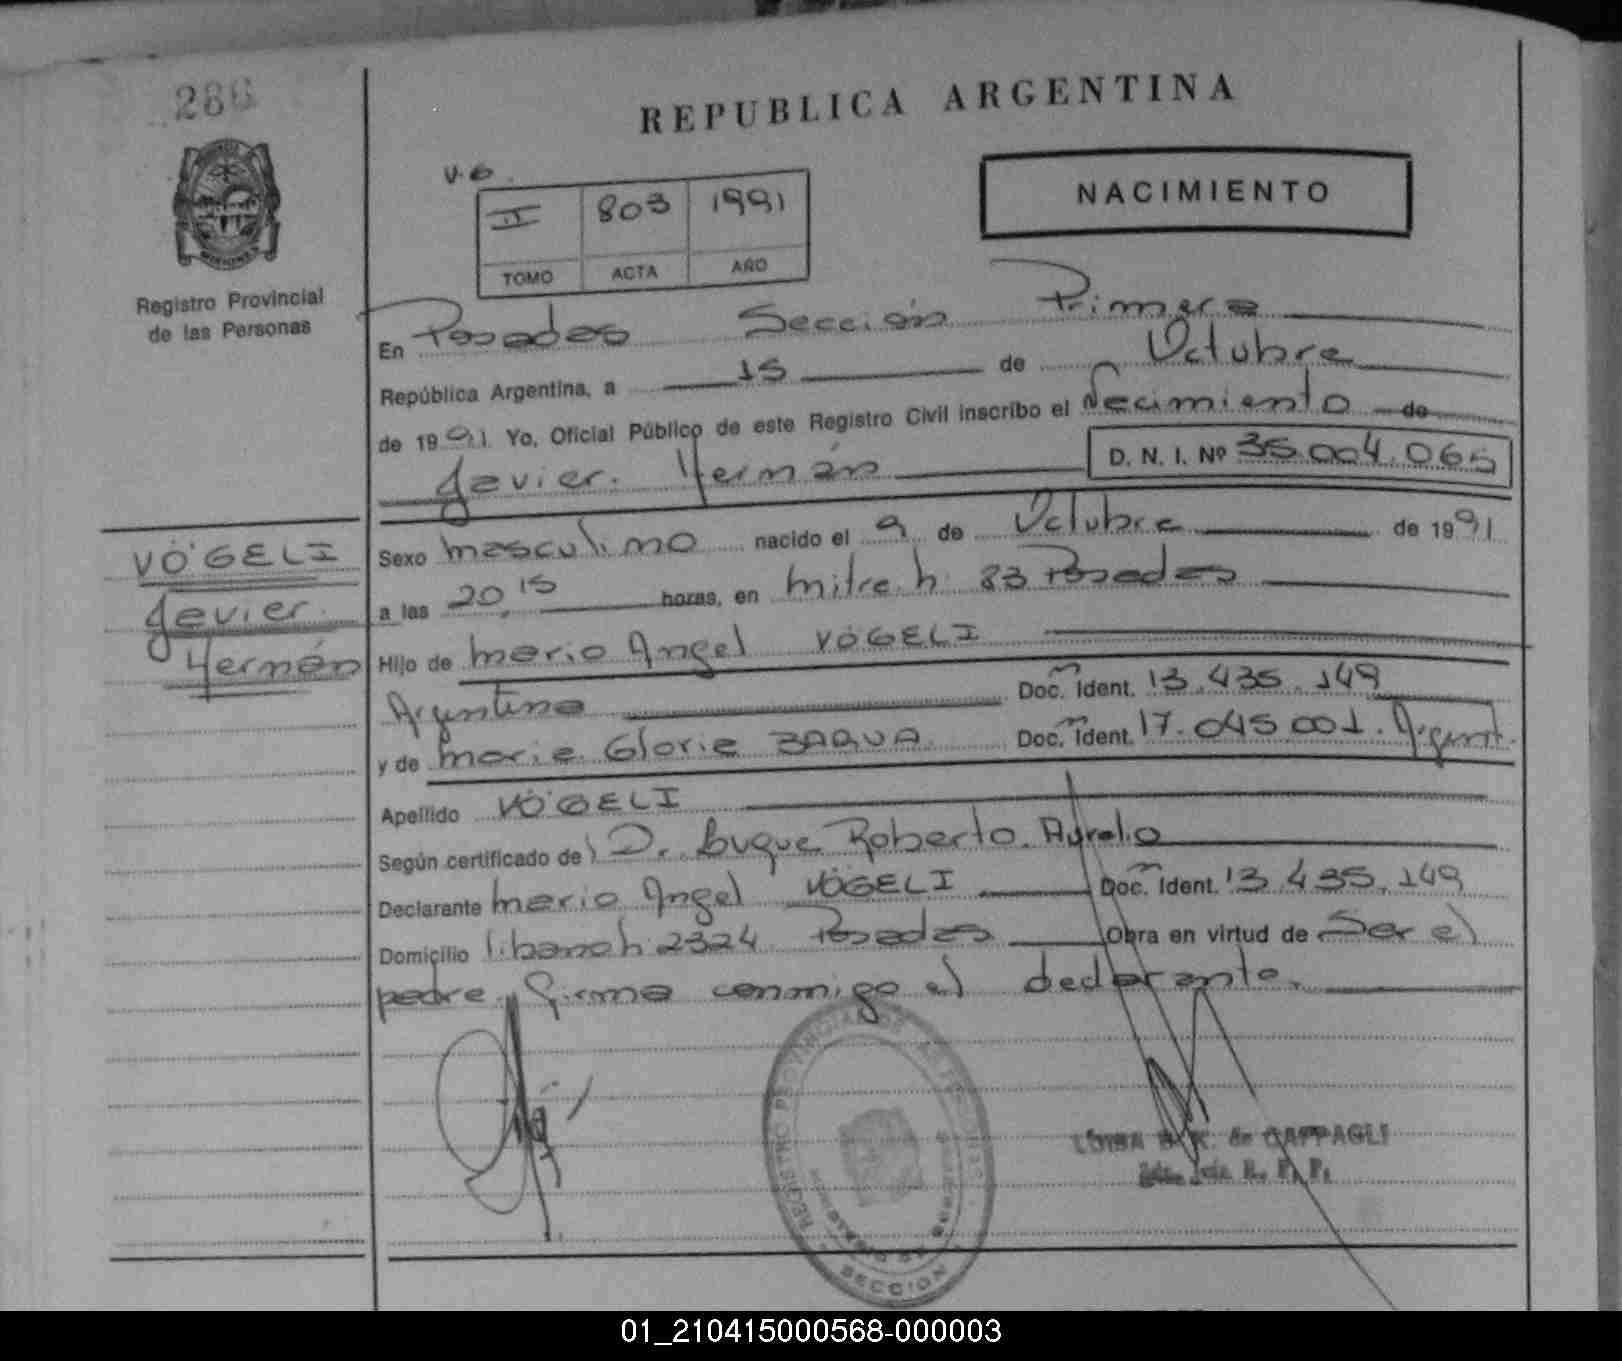 286
REPUBLICA ARGENTINA
V.6.
II 803 1991
TOMO ACTA AÑO
NACIMIENTO
Registro Provincial
de las Personas
En Posadas Sección Primera
República Argentina, a 15 de Octubre
de 1991 Yo, Oficial Público de este Registro Civil inscribo el Nacimiento de
Javier Hernán D. N. I. Nº 35.004.065
VÖGELI
Javier
Hernán
Sexo masculino nacido el 9 de Octubre de 1991
a las 20,15 horas, en mitre h 83 Posadas
Hijo de mario Angel VÖGELI
Argentina Doc. Ident. 13.435.149
y de maria Gloria Doc. Ident. 17.045.001. Argent.
Apellido VÖGELI
Según certificado de D. Roberto Aurelio
Declarante mario Angel VÖGELI Doc. Ident. 13.435.149
Domicilio 2324 Posadas Obra en virtud de Ser el
padre. firma conmigo el declarante.
REGISTRO PROVINCIAL DE LAS PERSONAS
MINISTERIO DE GOBIERNO
SECCION
LUISA de CAPPAGLI
01_210415000568-000003